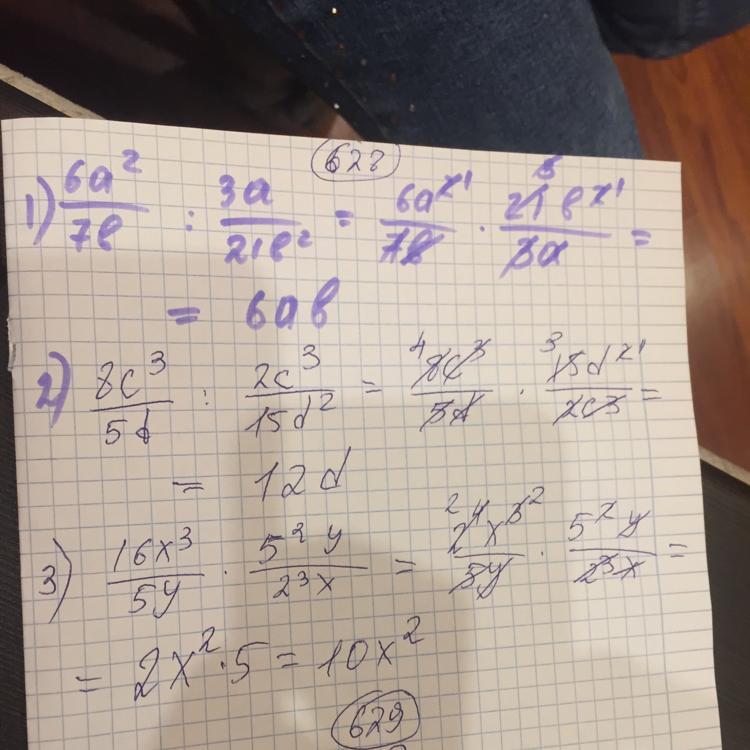 628
1) 6a²/7b : 3a/21b² = 6a²¹/7b · 21³b²¹/3a =
= 6ab
2) 8c³/5d : 2c³/15d² = ⁴8c³/5d · ³15d²¹/2c³ =
= 12d
3) 16x³/5y · 5²y/2³x = ²2⁴x³²/5y · 5²y/2³x =
= 2x² · 5 = 10x²
629